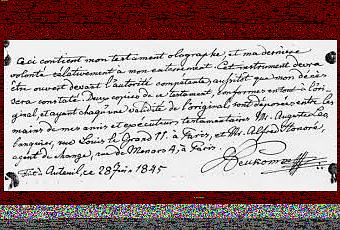 Ceci contient mon testament olographe, et ma dernière
volonté rélativement a mon enterrement. Cet instrument devra
être ouvert devant l'autorité compétente, aussitot que mon décès
sera constaté. Deux copies de ce testament, conformes en tout à l'ori-
ginal, et ayant chaqu'une validité de l'original sont déposées entre les
mains de mes amis et exécuteurs testamentaires M. Auguste Leo,
banquier, rue Louis le Grand 11. à Paris, et Mr. Alfred Honoré,
agent de change, rue de Menars 4, à Paris.
Auteuil, ce 28 1845
Neukomm